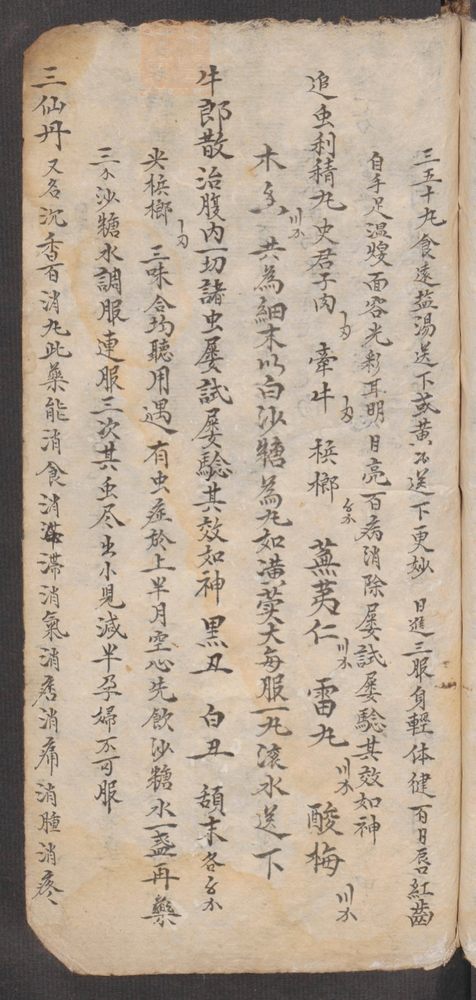 三五十丸食遠盐湯送下或黄酒送下更妙 日進三服身輕体健百日唇紅齒
自手足温煖面容光彩耳明目亮百病消除屡試屡驗其效如神
追虫利積丸 史君子肉 牽牛 槟榔 蕪荑仁 雷丸 酸梅
木香 共為細末以白沙糖為丸如潢荳大每服一丸滚水送下
牛郎散 治腹内一切諸虫屡試屡驗其效如神 黑丑 白丑 頭末各
尖槟榔 三味合均聽用遇有虫症於上半月空心先飲沙糖水一盞再藥
三分沙糖水調服連服三次其虫尽出小児減半孕婦不可服
三仙丹 又名沉香百消丸此藥能消食消滞消氣消痞消痛消腫消疼